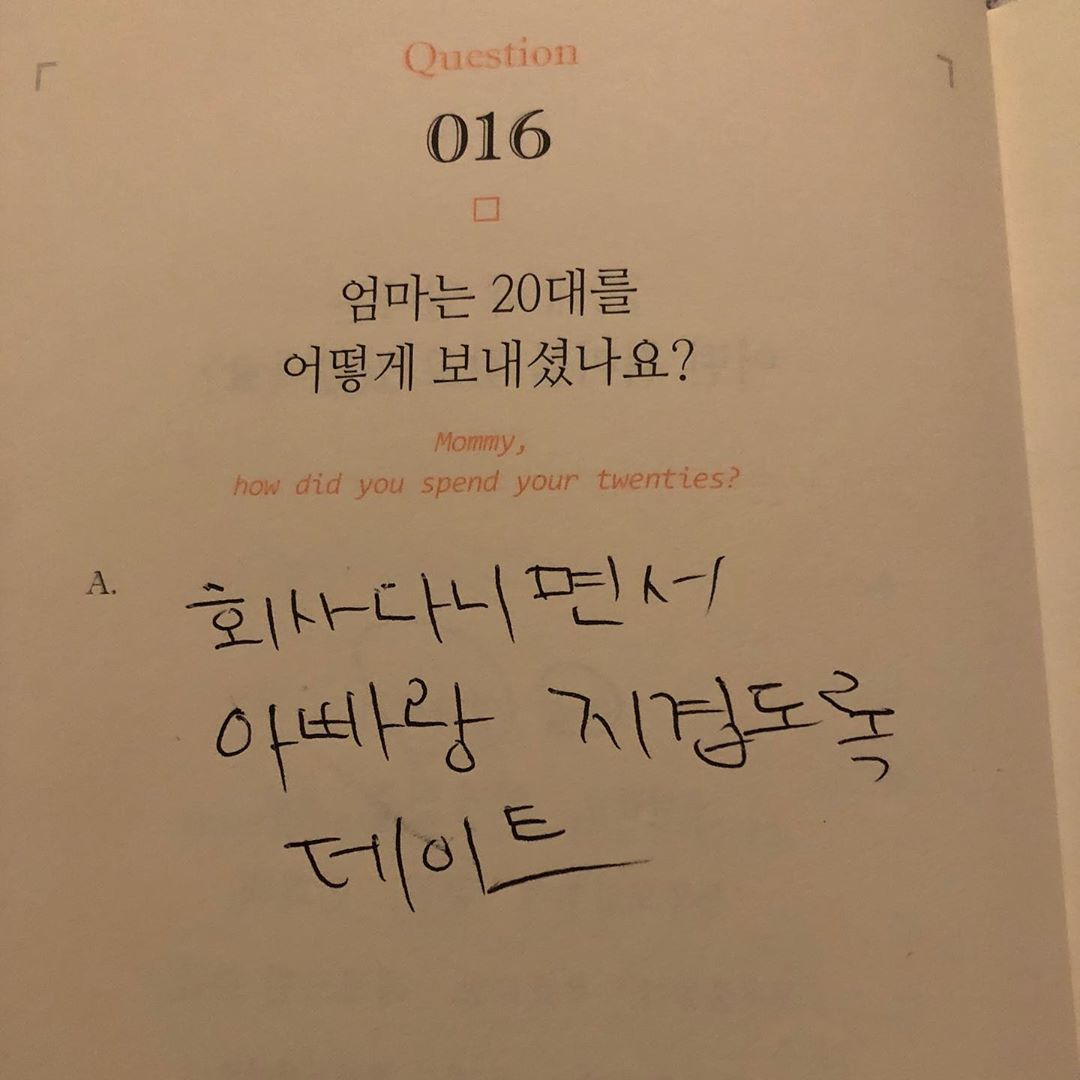 Question
016
엄마는 20대를
어떻게 보내셨나요?
Mommy,
how did you spend your twenties?
A. 회사다니면서
아빠랑 지겹도록
데이트